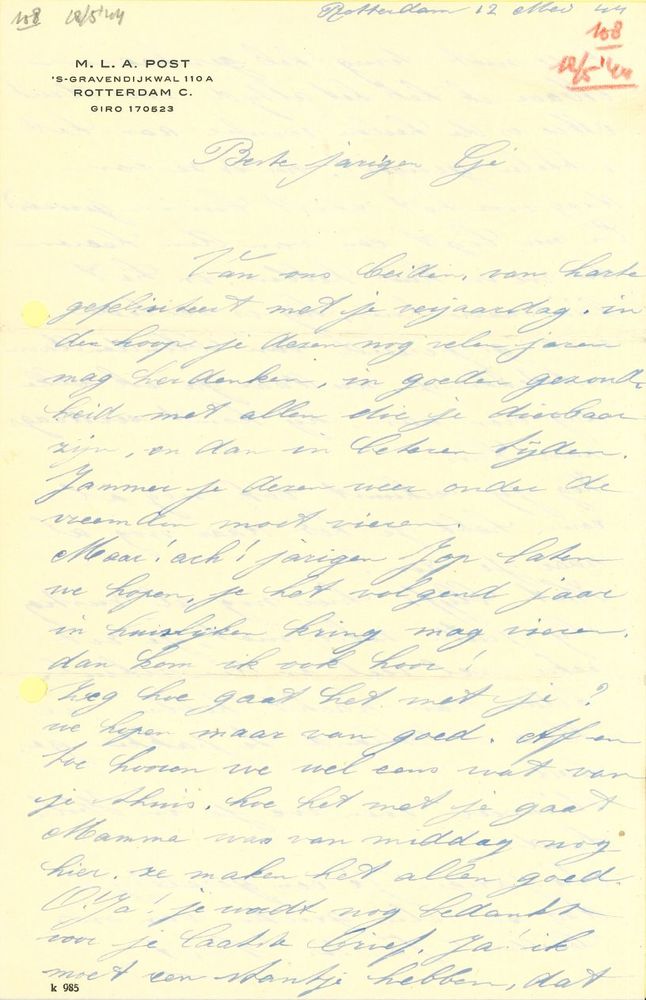 108 12/5'44
Rotterdam 12 Mei 44
108
12/5'44
M. L. A. POST
'S-GRAVENDIJKWAL 110 A
ROTTERDAM C.
GIRO 170523
Beste jarigen
Van ons beiden, van harte
gefeliciteert met je verjaardag. in
de hoop je dezen nog velen jaren
mag herdenken, in goeden gezond-
heid met allen die je dierbaar
zijn, en dan in beteren tijden.
Jammer je dezen weer onder de
vreemden moet vieren.
Maar! ach! jarigen Jop laten
we hopen, je het volgend jaar
in huislijken kring mag vieren.
dan kom ik ook hoor!
Zeg hoe gaat het met je?
we hopen maar van goed. Af en
toe hooren we wel eens wat van
je thuis. hoe het met je gaat
Mamma was van middag nog
hier. ze maken het allen goed.
O! Ja! je wordt nog bedankt
voor je laatste brief. Ja! ik
moet een standje hebben, dat
k 985